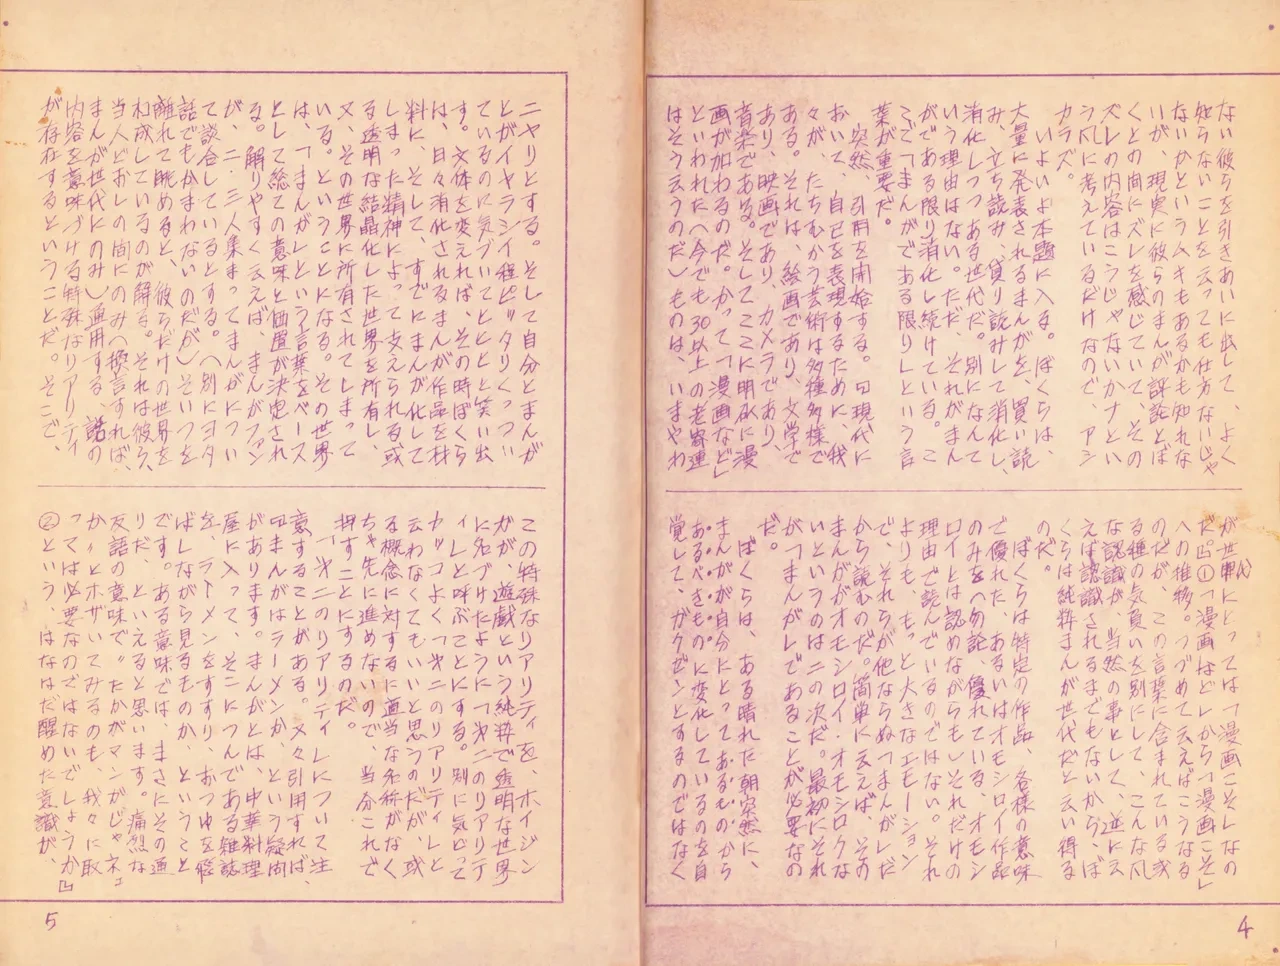 ない彼らを引きあいに出して、よく
知らないことを云っても仕方ないじゃ
ないかというムキもあるかも知れな
いが、現実に彼らのまんが評論とぼ
くとの間にズレを感じていて、その
ズレの内容はこうじゃないかナとい
う風に考えているだけなので、アシ
カラズ。
いよいよ本題に入る。ぼくらは、
大量に発表されるまんがを、買い読
み、立ち読み、貸り読みして消化し、
消化しつつある世代だ。別になんて
いう理由はない。ただ、それがまん
がである限り消化し続けている。こ
こで「まんがである限り」という言
葉が重要だ。
突然、引用を開始する。『現代に
おいて、自己を表現するために、我
々が、たちむかう芸術は多種多様で
ある。それは、絵画であり、文学で
あり、映画であり、カメラであり、
音楽である。そしてここに明確に漫
画が加わるのだ。かって「漫画など」
といわれた〈今でも30以上の老寄連
はそう云うのだ〉ものは、いまやわ
が世代にとっては「漫画こそ」なの
だ。』①「漫画はど」から「漫画こそ」
への推移。つづめて云えばこうなる
のだが、この言葉に含まれている或
る種の気負いを別にして、こんな風
な認識が、当然の事として、逆に云
えば認識されるまでもないから、ぼ
くらは純粋まんが世代だと云い得る
のだ。
ぼくらは特定の作品、各様の意味
で優れた、あるいはオモシロイ作品
のみを〈勿論、優れている、オモシ
ロイとは認めながらも〉それだけの
理由で読んでいるのではない。それ
よりも、もっと大きなエモーション
で、それらが他ならぬ「まんが」だ
から読むのだ。簡単に云えば、その
まんががオモシロイ・オモシロクな
いというのは二の次だ。最初にそれ
が「まんが」であることが必要なの
だ。
ぼくらは、ある晴れた朝突然に、
まんがが自分にとってあるものから
あるべきものに変化しているのを自
覚して、ガクゼンとするのではなく
4
ニヤリとする。そして自分とまんが
とがイヤラシイ程ピッタリくっつい
ているのに気づいてヒヒヒと笑い出
す。文体を変えれば、その時ぼくら
は、日々消化されるまんが作品を材
料に、そして、すでにまんが化して
しまった精神によって支えられる或
る透明な結晶化した世界を所有し、
又、その世界に所有されてしまって
いる。ということになる。その世界
は、「まんが」という言葉をベース
として総ての意味と価値が決定され
る。解りやすく云えば、まんがファン
が、二・三人集まってまんがについ
て談合しているとする。〈別にヨタ
話でもかまわないのだが〉そいつを
離れて眺めると、彼らだけの世界を
形成しているのが解る。それは彼ら、
当人どおしの間にのみ〈換言すれば、
まんが世代にのみ〉通用する、話の
内容を意味づける特殊なリアリティ
が存在するということだ。そこで、
この特殊なリアリティを、ホイジン
ガが、遊戯という純粋で透明な世界
に名づけたように「第二のリアリテ
ィ」と呼ぶことにする。別に気どって
カッコよく「第二のリアリティ」と
云わなくてもいいと思うのだが、或
る概念に対するに適当な名称がなく
ちゃ先に進めないので、当分これで
押すことにするのだ。
「第二のリアリティ」について注
意することがある。又々引用すれば、
『まんがはラーメンか、という疑問
があります。まんがとは、中華料理
屋に入って、そこにつんである雑誌
を、ラーメンをすすり、おつゆを飛
ばしながら見るものか、ということ
です。ある意味では、まさにその通
りだ、といえると思います。痛烈な
反語の意味で。たかがマンガじゃネェ
か〃とホザいてみるのも、我々に取
っては必要なのではないでしょうか』
②という、はなはだ醒めた意識が、
5